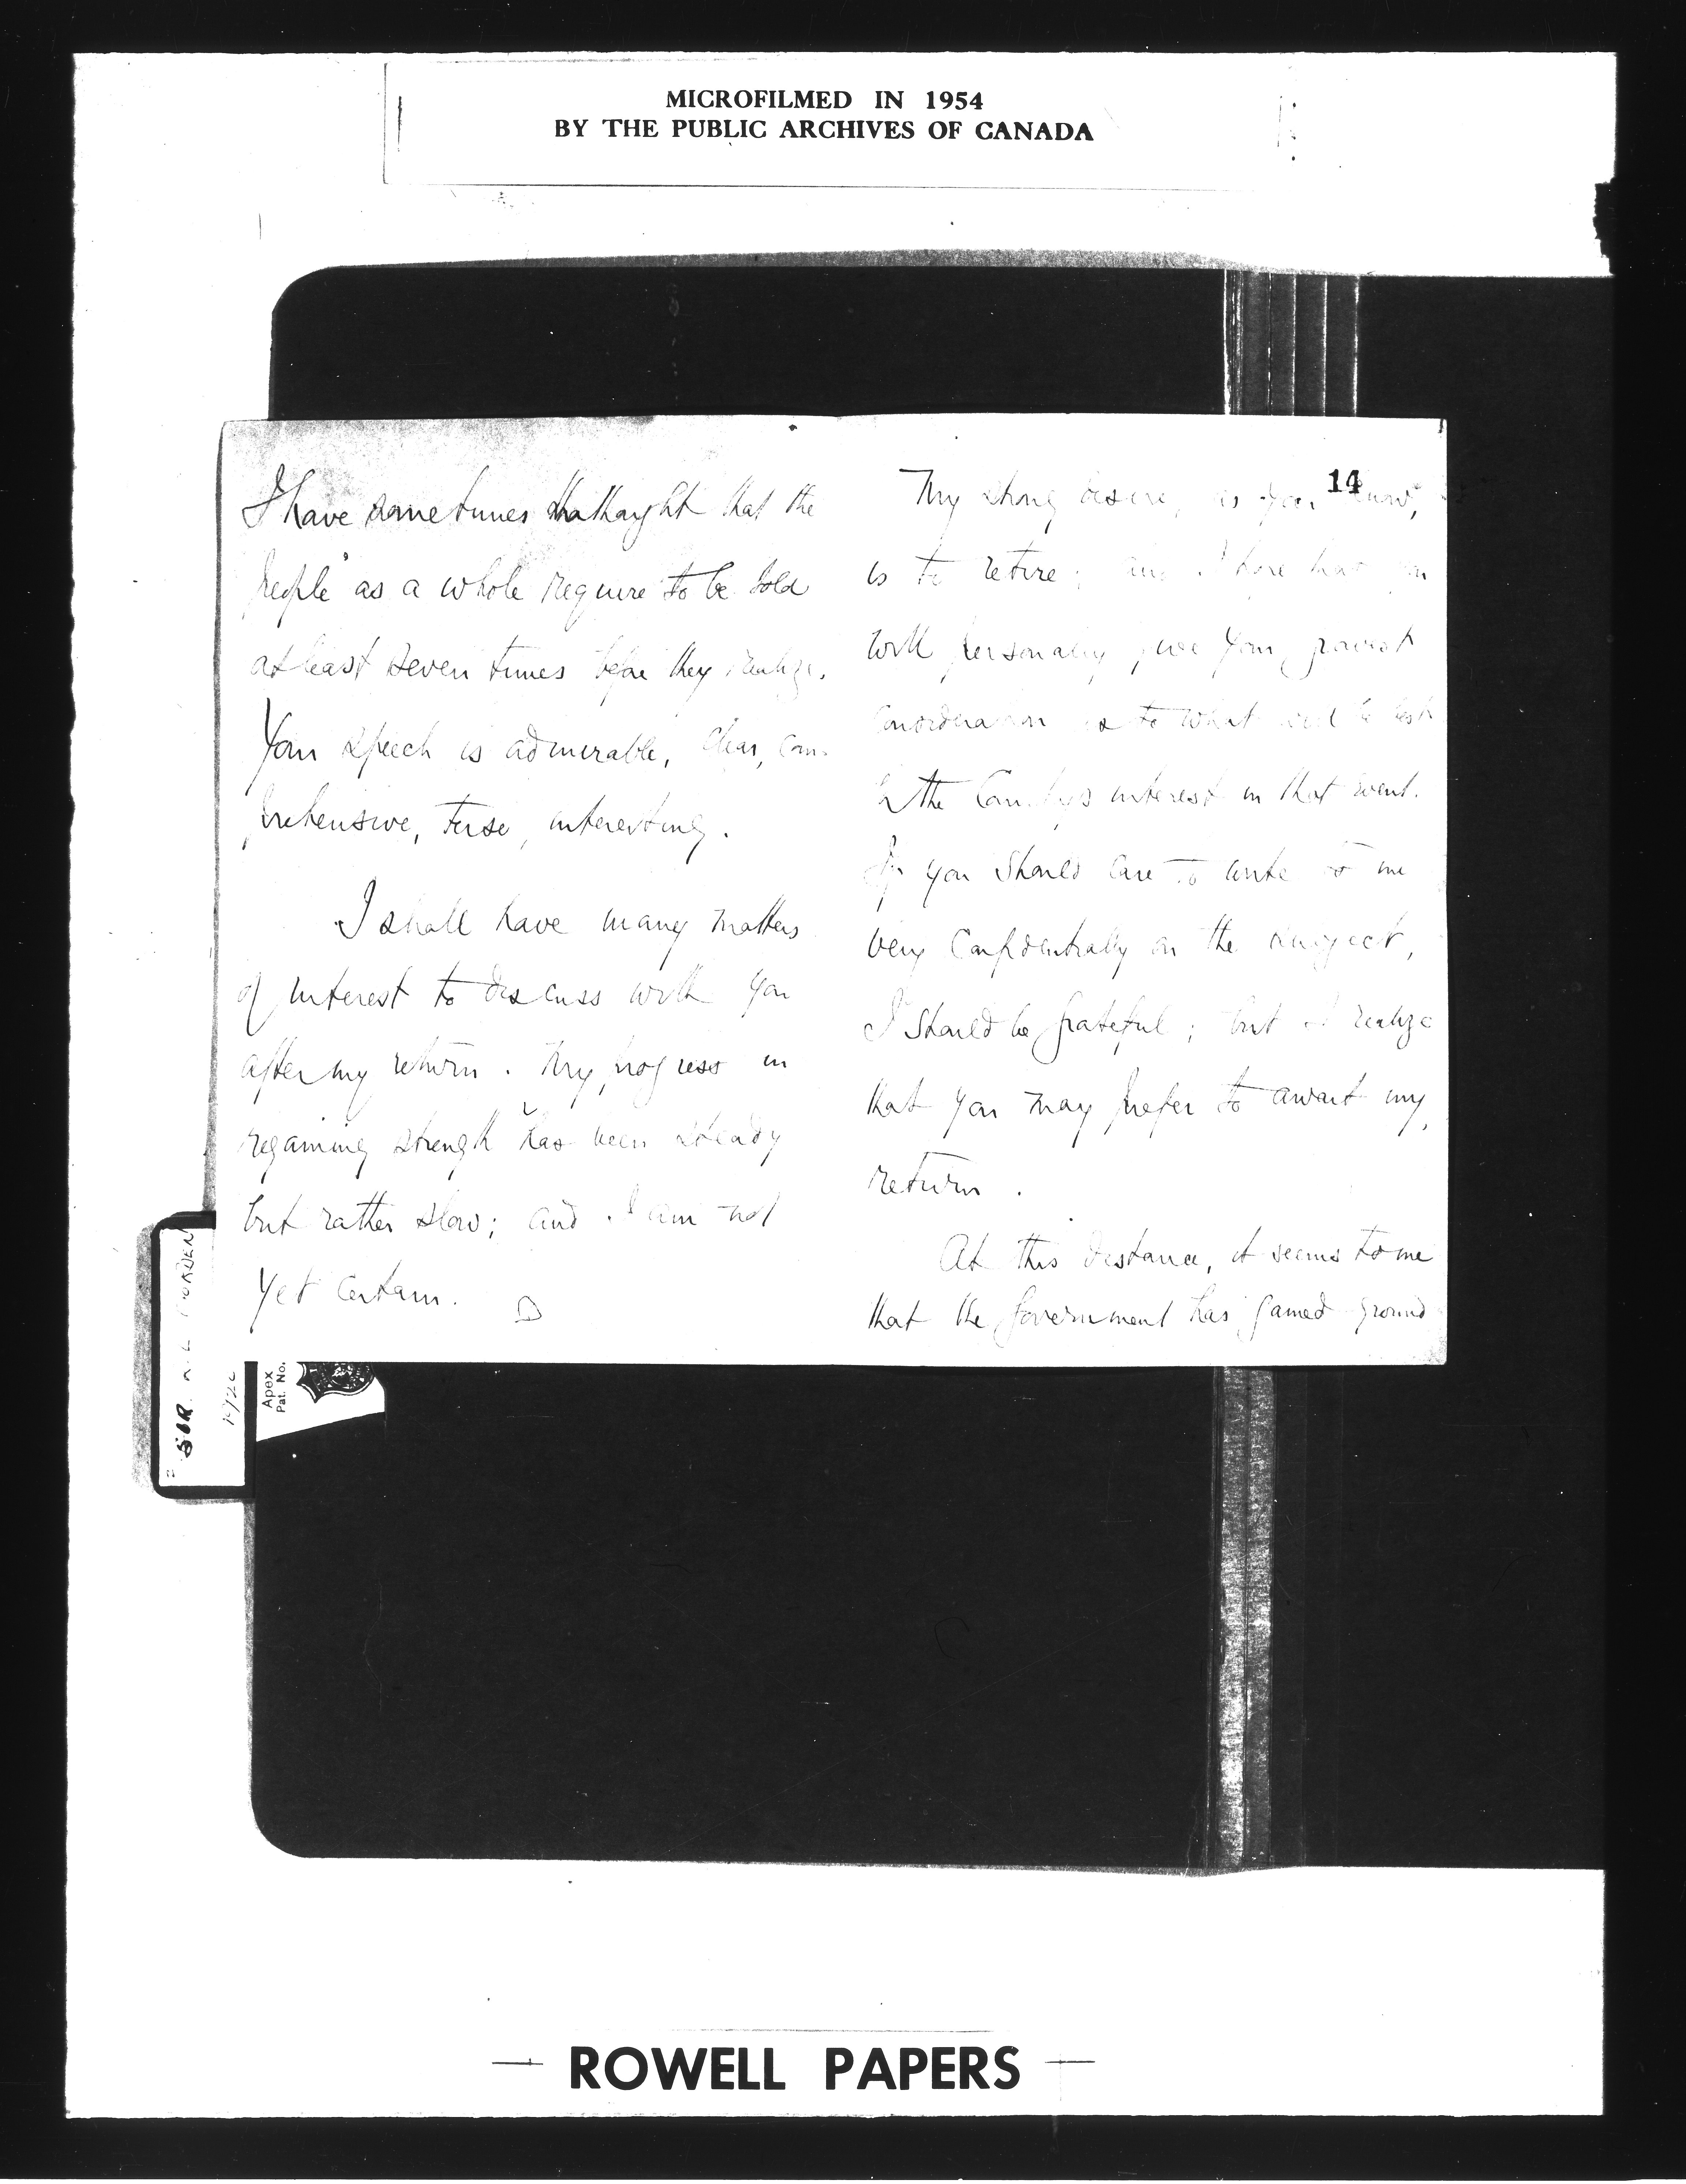 MICROFILMED IN 1954
BY THE PUBLIC ARCHIVES OF CANADA
I have sometimes thought that the
people as a whole require to be told
at least seven times before they realize.
Your speech is admirable, clear, com-
prehensive, terse, interesting.
I shall have many matters
of interest to discuss with you
after my return. My progress in
regaining strength has been steady
but rather slow; and I am not
yet certain.
14
My strong desire, as you know,
is to retire; and I hope that you
will personally give your gravest
consideration as to what will be best
in the Country's interest in that event.
If you should care to write to me
very confidentially on the subject,
I should be grateful; but I realize
that you may prefer to await my
return.
At this distance, it seems to me
that the Government has gained ground
SIR R.L. BORDEN
1920
Apex
Pat. No.
ROWELL PAPERS